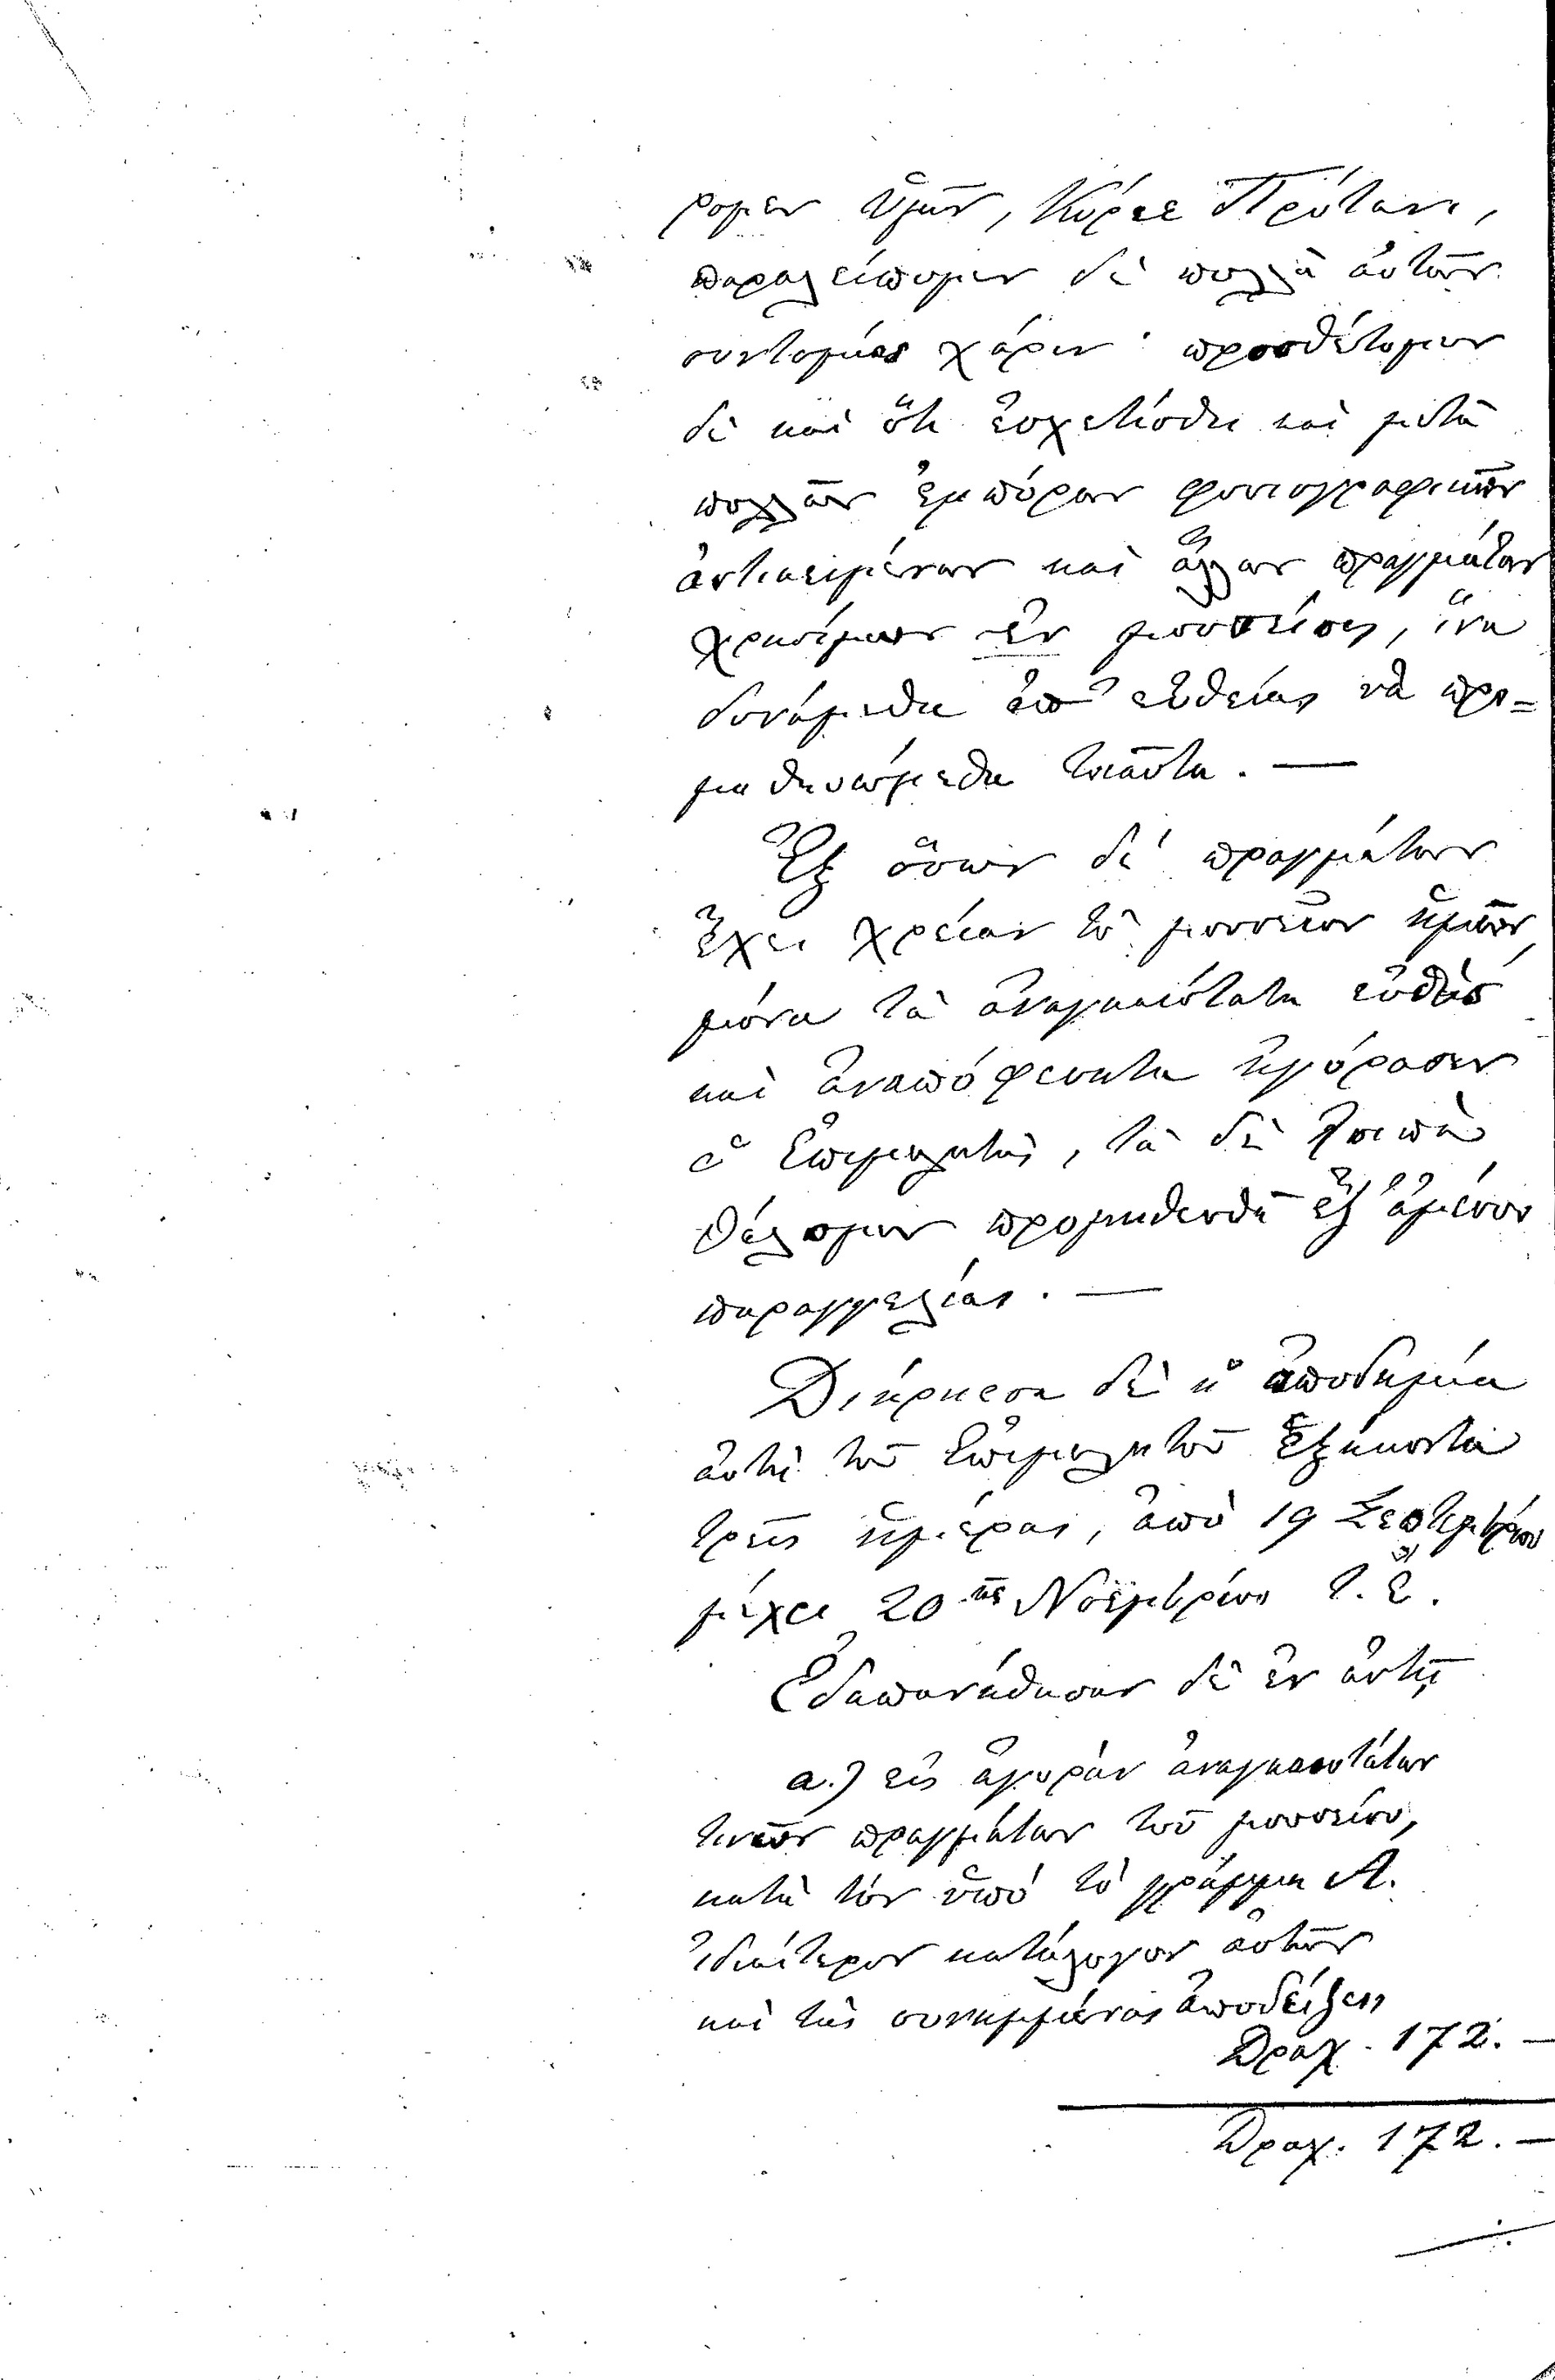 ρομεν Ὑμῖν, Κύριε Πρύτανι,
παραλείπομεν δὲ πολλὰ αὐτῶν
συντομίας χάριν· προσθέτομεν
δὲ καὶ ὅτι ἐσχετίσθη καὶ μετὰ
πολλῶν ἐμπόρων φυσιογραφικῶν
ἀντικειμένων καὶ ἄλλων πραγμάτων
χρησίμων ἐν μουσείοις, ἵνα
δυνάμεθα ἀπ' εὐθείας νὰ προ=
μηθευώμεθα τοιαῦτα. —
Ἐξ ὅσων δὲ πραγμάτων
ἔχει χρείαν τὸ μουσεῖον ἡμῶν,
μόνα τὰ ἀναγκαιότατα εὐθὺς
καὶ ἀναπόφευκτα ἠγόρασεν
ὁ Ἐπιμελητής, τὰ δὲ λοιπὰ
θέλομεν προμηθευθῆ ἐξ ἀμέσου
παραγγελίας. —
Διήρκεσε δὲ ἡ ἀποδημία
αὐτὴ τοῦ Ἐπιμελητοῦ ἑξήκοντα
τρεῖς ἡμέρας, ἀπὸ 19 Σεπτεμβρίου
μέχρι 20ῆς Νοεμβρίου τ. ἔ.
Ἐδαπανήθησαν δὲ ἐν αὐτῇ
α.) εἰς ἀγορὰν ἀναγκαιοτάτων
τινῶν πραγμάτων τοῦ μουσείου,
κατὰ τὸν ὑπὸ τὸ γράμμα Α.
ἰδιαίτερον κατάλογον αὐτῶν
καὶ τὰς συνημμένας ἀποδείξεις
Δραχ. 172. —
Δραχ. 172. —